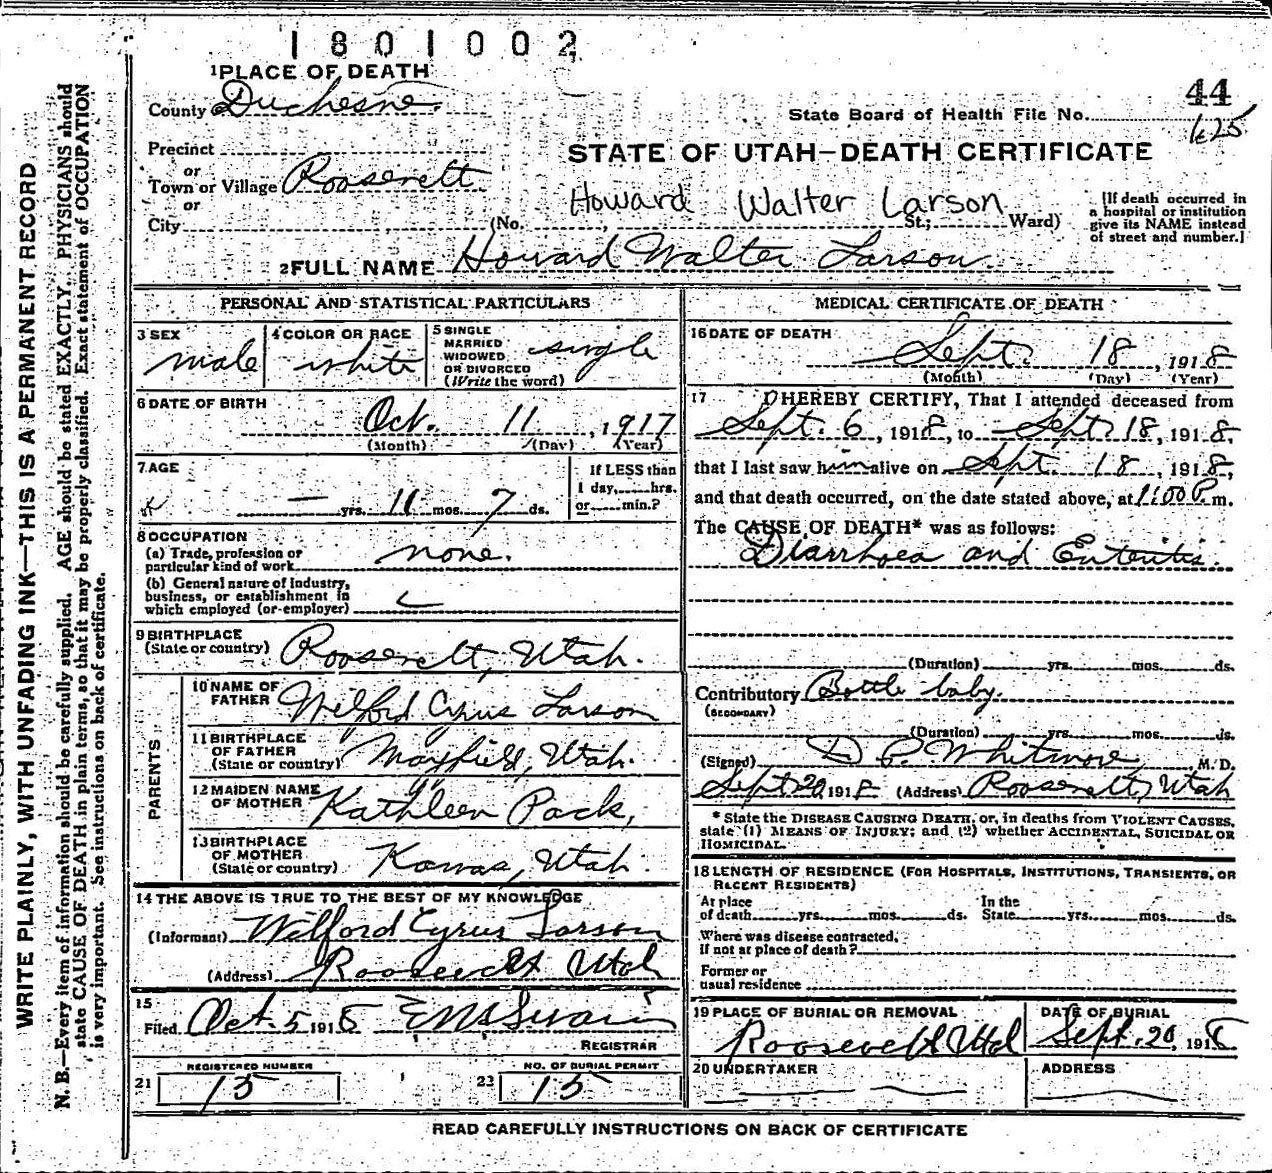 1801002
1 PLACE OF DEATH
44
County Duchesne.
State Board of Health File No.
625
Precinct
STATE OF UTAH—DEATH CERTIFICATE
or
Town or Village Roosevelt
or
Howard Walter Larson
City (No. St.; Ward)
[If death occurred in
a hospital or institution
give its NAME instead
of street and number.]
2 FULL NAME Howard Walter Larson.
PERSONAL AND STATISTICAL PARTICULARS
3 SEX
male
4 COLOR OR RACE
white
5 SINGLE
MARRIED
WIDOWED
OR DIVORCED
(Write the word)
single
6 DATE OF BIRTH
Oct. 11, 1917
(Month) (Day) (Year)
7 AGE
— yrs. 11 mos. 7 ds.
If LESS than
1 day, hrs.
or min.?
8 OCCUPATION
(a) Trade, profession or
particular kind of work none.
(b) General nature of industry,
business, or establishment in
which employed (or employer)
9 BIRTHPLACE
(State or country) Roosevelt, Utah.
PARENTS
10 NAME OF
FATHER Wilford Cyrus Larson
11 BIRTHPLACE
OF FATHER
(State or country) Mayfield, Utah.
12 MAIDEN NAME
OF MOTHER Kathleen Pack,
13 BIRTHPLACE
OF MOTHER
(State or country) Kamas, Utah.
14 THE ABOVE IS TRUE TO THE BEST OF MY KNOWLEDGE
(Informant) Wilford Cyrus Larson
(Address) Roosevelt Utah
15
Filed Oct. 5 1918
REGISTRAR
REGISTERED NUMBER
21 15
NO. OF BURIAL PERMIT
22 15
MEDICAL CERTIFICATE OF DEATH
16 DATE OF DEATH
Sept. 18, 1918
(Month) (Day) (Year)
17 I HEREBY CERTIFY, That I attended deceased from
Sept. 6, 1918, to Sept. 18, 1918,
that I last saw him alive on Sept. 18, 1918,
and that death occurred, on the date stated above, at 1:00 P. m.
The CAUSE OF DEATH* was as follows:
Diarrhoea and Enteritis.
(Duration) yrs. mos. ds.
Contributory Bottle baby.
(SECONDARY)
(Duration) yrs. mos. ds.
(Signed) D. P. Whitmore, M. D.
Sept. 20 1918 (Address) Roosevelt, Utah
* State the DISEASE CAUSING DEATH, or, in deaths from VIOLENT CAUSES,
state (1) MEANS OF INJURY; and (2) whether ACCIDENTAL, SUICIDAL OR
HOMICIDAL.
18 LENGTH OF RESIDENCE (FOR HOSPITALS, INSTITUTIONS, TRANSIENTS, OR
RECENT RESIDENTS)
At place
of death yrs. mos. ds.
In the
State yrs. mos. ds.
Where was disease contracted,
if not at place of death?
Former or
usual residence
19 PLACE OF BURIAL OR REMOVAL
Roosevelt Utah
DATE OF BURIAL
Sept. 20, 1918
20 UNDERTAKER
ADDRESS
READ CAREFULLY INSTRUCTIONS ON BACK OF CERTIFICATE
WRITE PLAINLY, WITH UNFADING INK—THIS IS A PERMANENT RECORD
N. B.—Every item of information should be carefully supplied. AGE should be stated EXACTLY. PHYSICIANS should
state CAUSE OF DEATH in plain terms, so that it may be properly classified. Exact statement of OCCUPATION
is very important. See instructions on back of certificate.